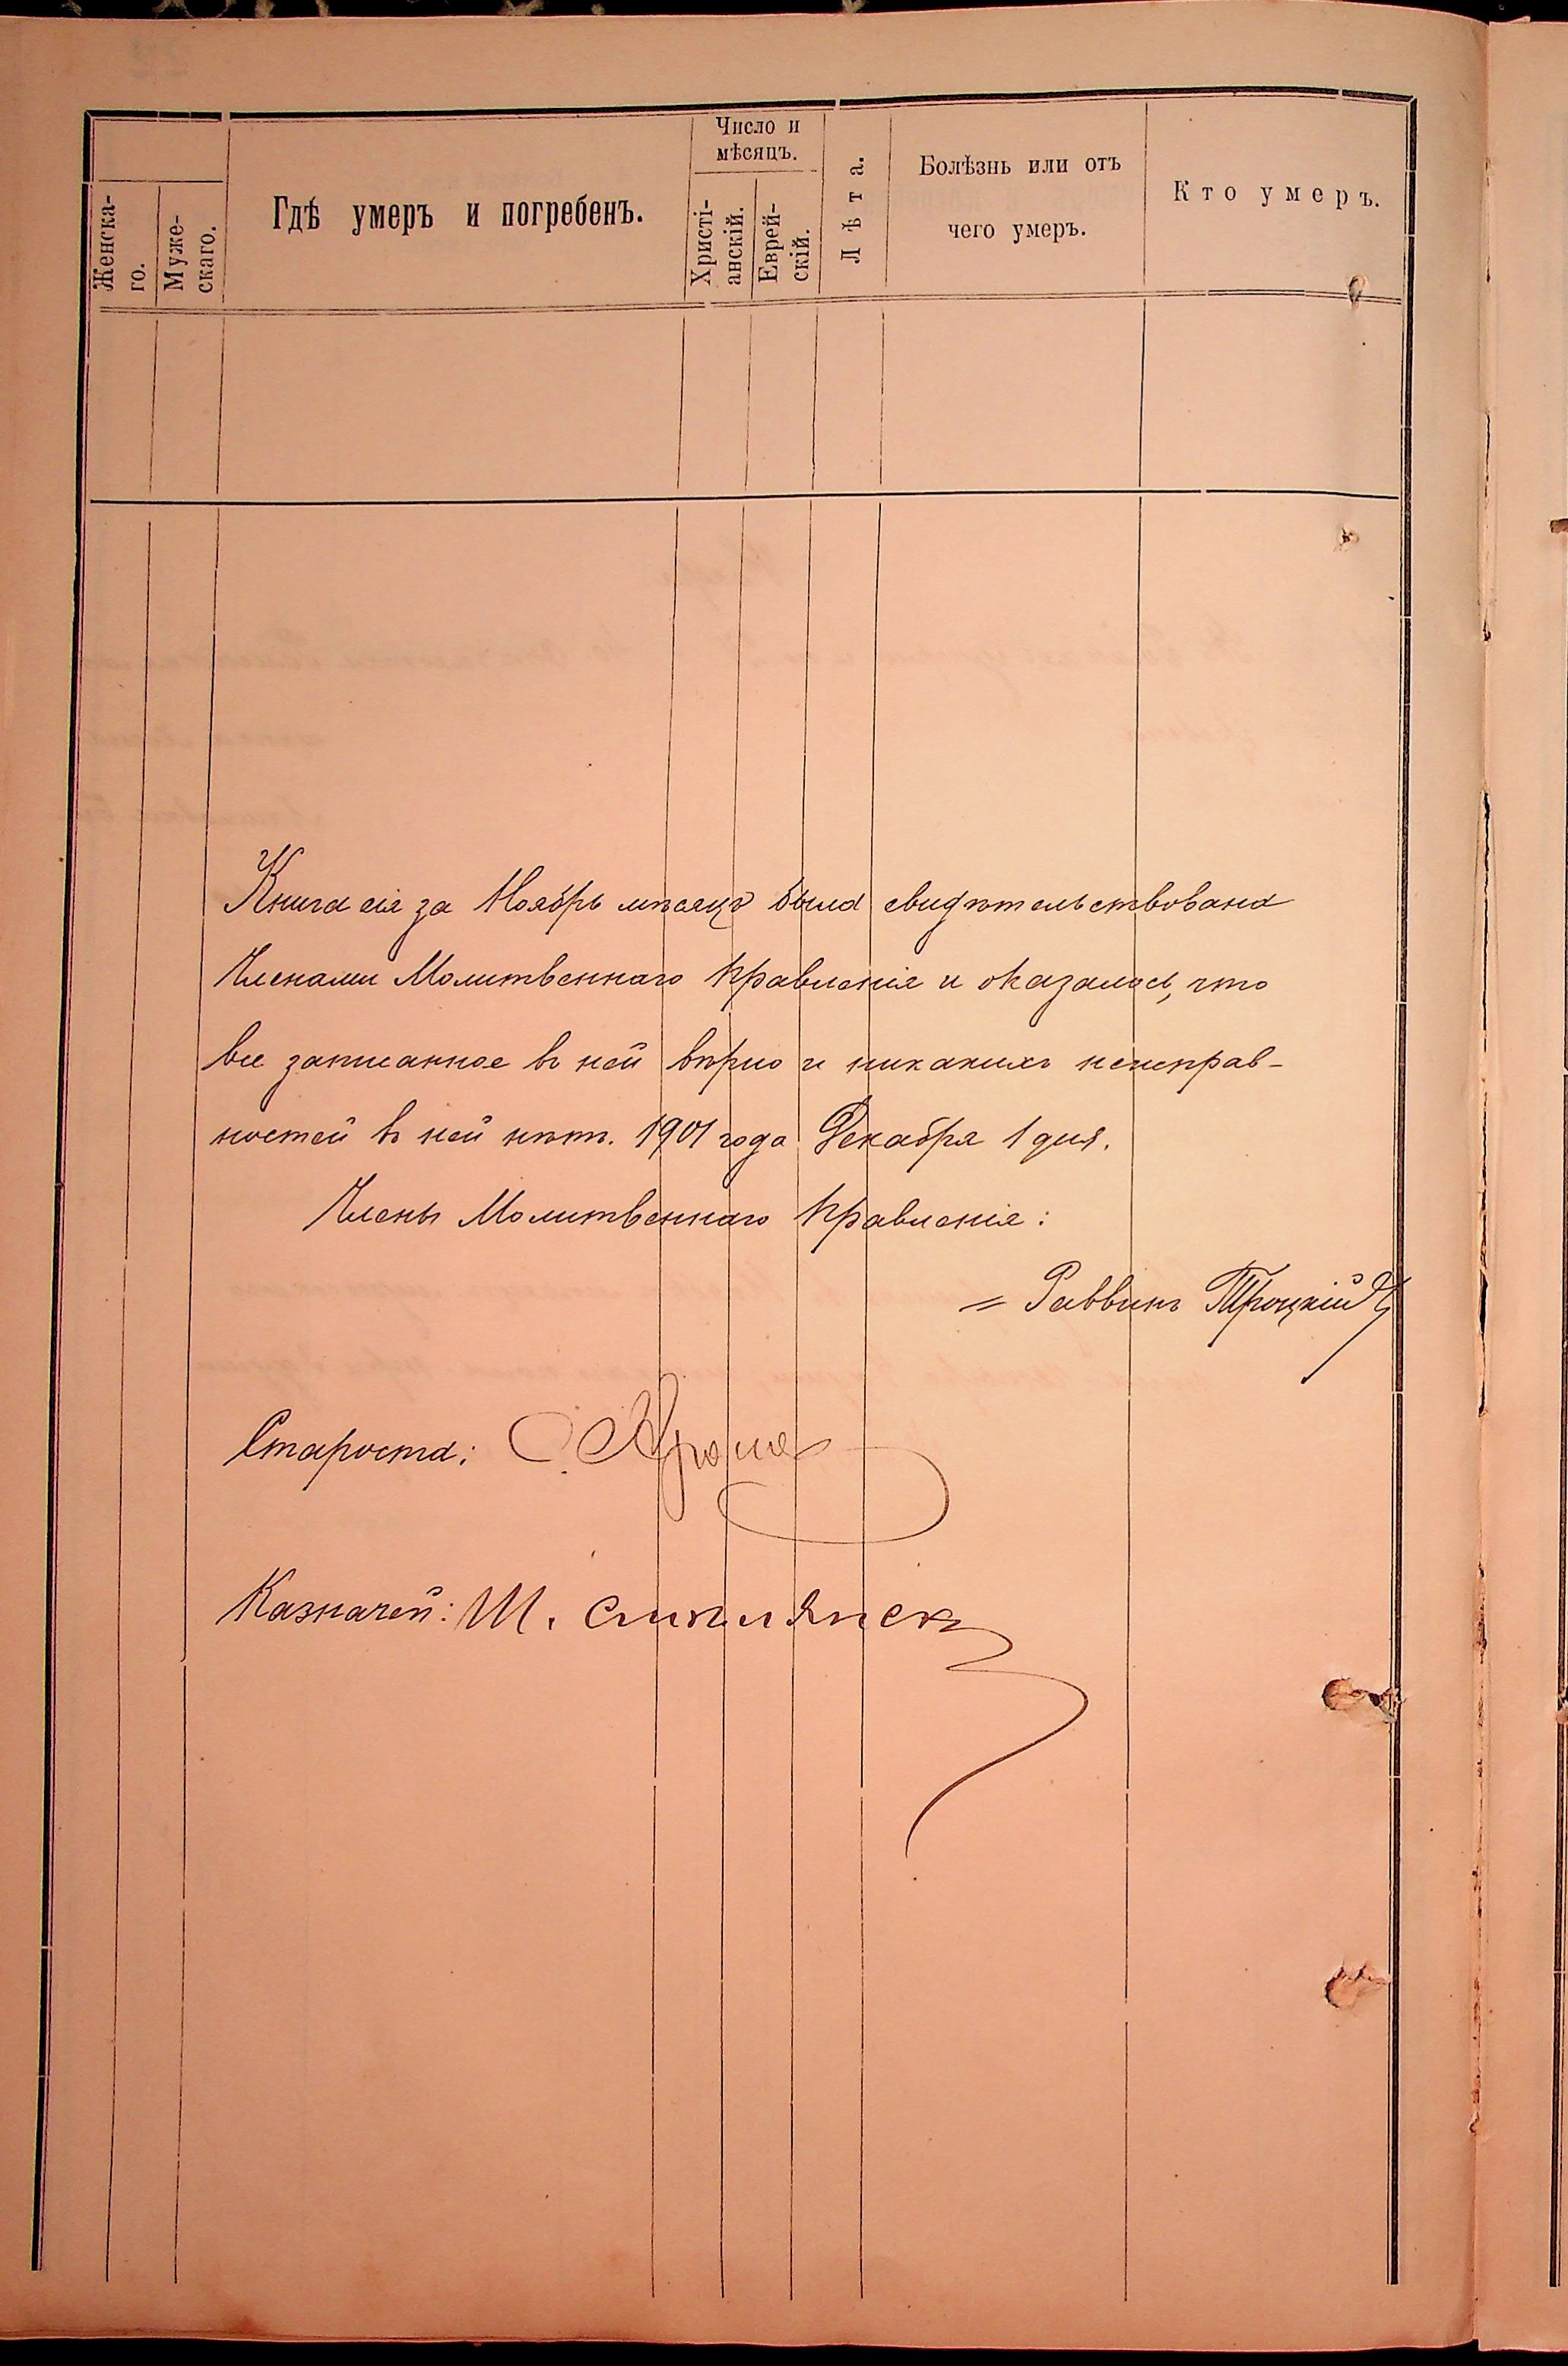 Женска-
го.
Муже-
скаго.
Гдѣ умеръ и погребенъ.
Число и
мѣсяцъ.
Христі-
анскій.
Еврей-
скій.
Лѣта.
Болѣзнь или отъ
чего умеръ.
Кто умеръ.
Книга сія за Ноябрь мѣсяцъ была свидѣтельствована
Членами Молитвеннаго Правленія и оказалось, что
все записанное въ ней вѣрно и никакихъ неисправ-
ностей въ ней нѣтъ. 1901 года Декабря 1 дня.
Члены Молитвеннаго Правленія:
= Раввинъ Троцкій
Староста:
Казначей: Ш.